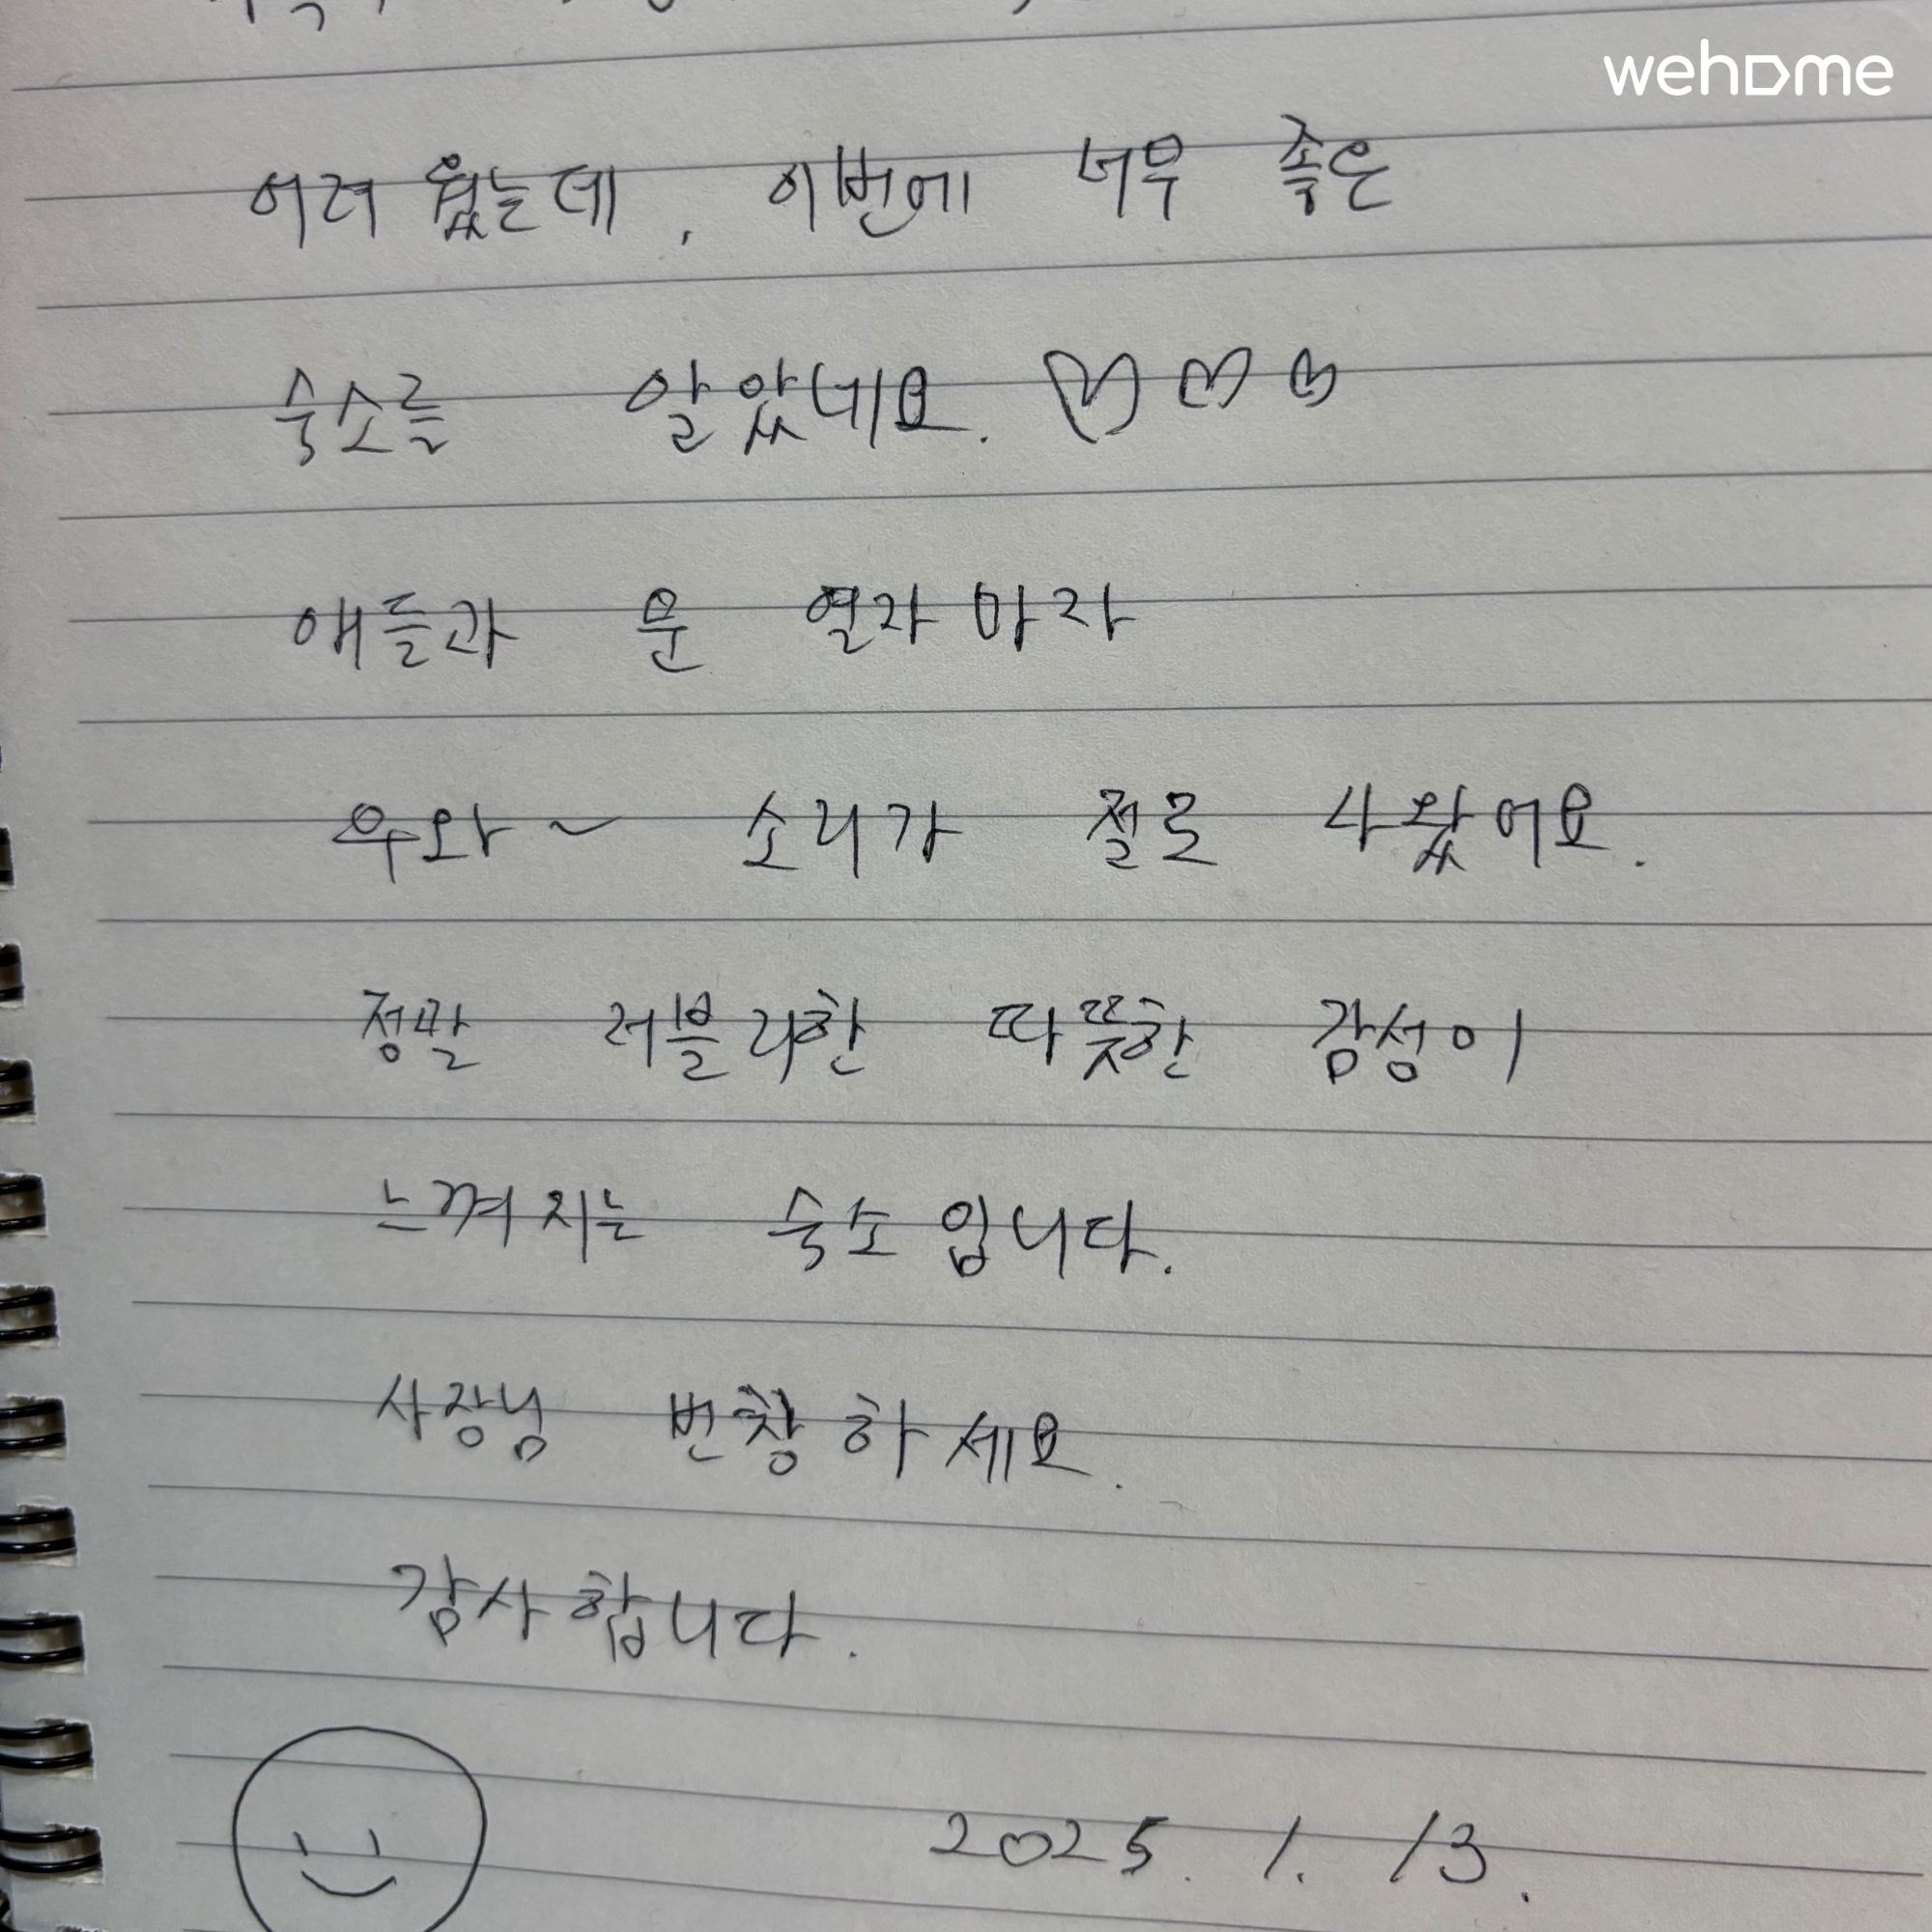 wehome
어려웠는데, 이번에 너무 좋은
숙소를 알았네요. ♡♡♡
애들과 문 열자마자
우와~ 소리가 절로 나왔어요.
정말 러블리한 따뜻한 감성이
느껴지는 숙소입니다.
사장님 번창하세요.
감사합니다.
2025. 1. 13.